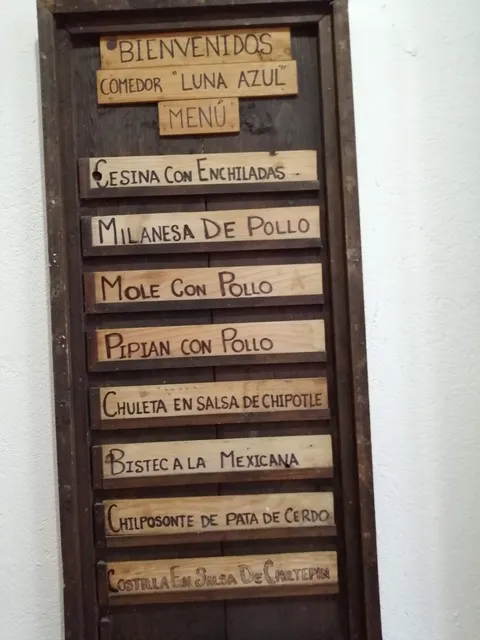 BIENVENIDOS
COMEDOR "LUNA AZUL"
MENÚ
CESINA CON ENCHILADAS
MILANESA DE POLLO
MOLE CON POLLO
PIPIAN CON POLLO
CHULETA EN SALSA DE CHIPOTLE
BISTEC A LA MEXICANA
CHILPOSONTE DE PATA DE CERDO
COSTILLA EN SALSA DE CHILTEPIN